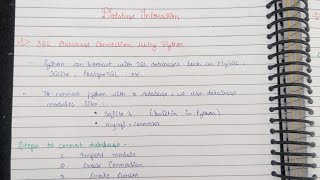 Database Interaction
SQL Database Connection Using Python
- Python can Interact with SQL databases such as MySQL,
SQLite, PostgreSQL, ex.
- To connect python with a database, we use database
modules like :
• Sqlite 3 (built in in Python)
• mysql.connector
Steps to connect database -
1. Import module
2. Create Connection
3. Create Cursor